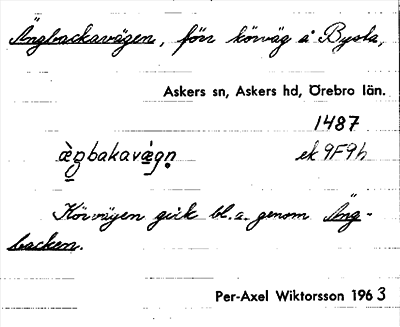 Ängbackavägen, förr körväg å Bysta,
Askers sn, Askers hd, Örebro län.
1487
æ̀ŋbakavæ̀gṇ ek 9F9h
Körvägen gick bl.a. genom Äng-
backen.
Per-Axel Wiktorsson 1963